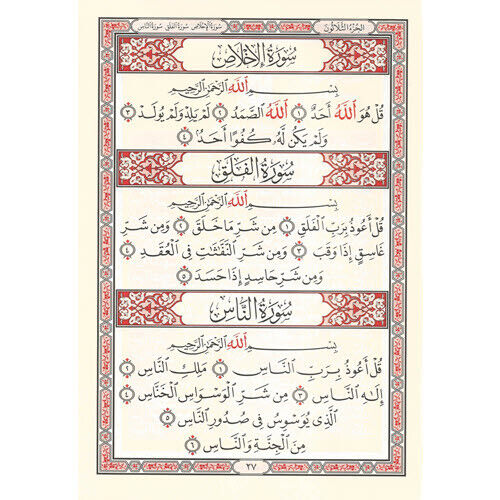 الجزء الثلاثون
سورة الإخلاص سورة الفلق سورة الناس
سُورَةُ الإِخْلَاصِ
بِسْمِ اللَّهِ الرَّحْمَٰنِ الرَّحِيمِ
قُلْ هُوَ اللَّهُ أَحَدٌ ۝١ اللَّهُ الصَّمَدُ ۝٢ لَمْ يَلِدْ وَلَمْ يُولَدْ ۝٣
وَلَمْ يَكُن لَّهُ كُفُوًا أَحَدٌ ۝٤
سُورَةُ الْفَلَقِ
بِسْمِ اللَّهِ الرَّحْمَٰنِ الرَّحِيمِ
قُلْ أَعُوذُ بِرَبِّ الْفَلَقِ ۝١ مِن شَرِّ مَا خَلَقَ ۝٢ وَمِن شَرِّ
غَاسِقٍ إِذَا وَقَبَ ۝٣ وَمِن شَرِّ النَّفَّٰثَٰتِ فِي الْعُقَدِ ۝٤
وَمِن شَرِّ حَاسِدٍ إِذَا حَسَدَ ۝٥
سُورَةُ النَّاسِ
بِسْمِ اللَّهِ الرَّحْمَٰنِ الرَّحِيمِ
قُلْ أَعُوذُ بِرَبِّ النَّاسِ ۝١ مَلِكِ النَّاسِ ۝٢
إِلَٰهِ النَّاسِ ۝٣ مِن شَرِّ الْوَسْوَاسِ الْخَنَّاسِ ۝٤
الَّذِي يُوَسْوِسُ فِي صُدُورِ النَّاسِ ۝٥
مِنَ الْجِنَّةِ وَالنَّاسِ ۝٦
٢٧